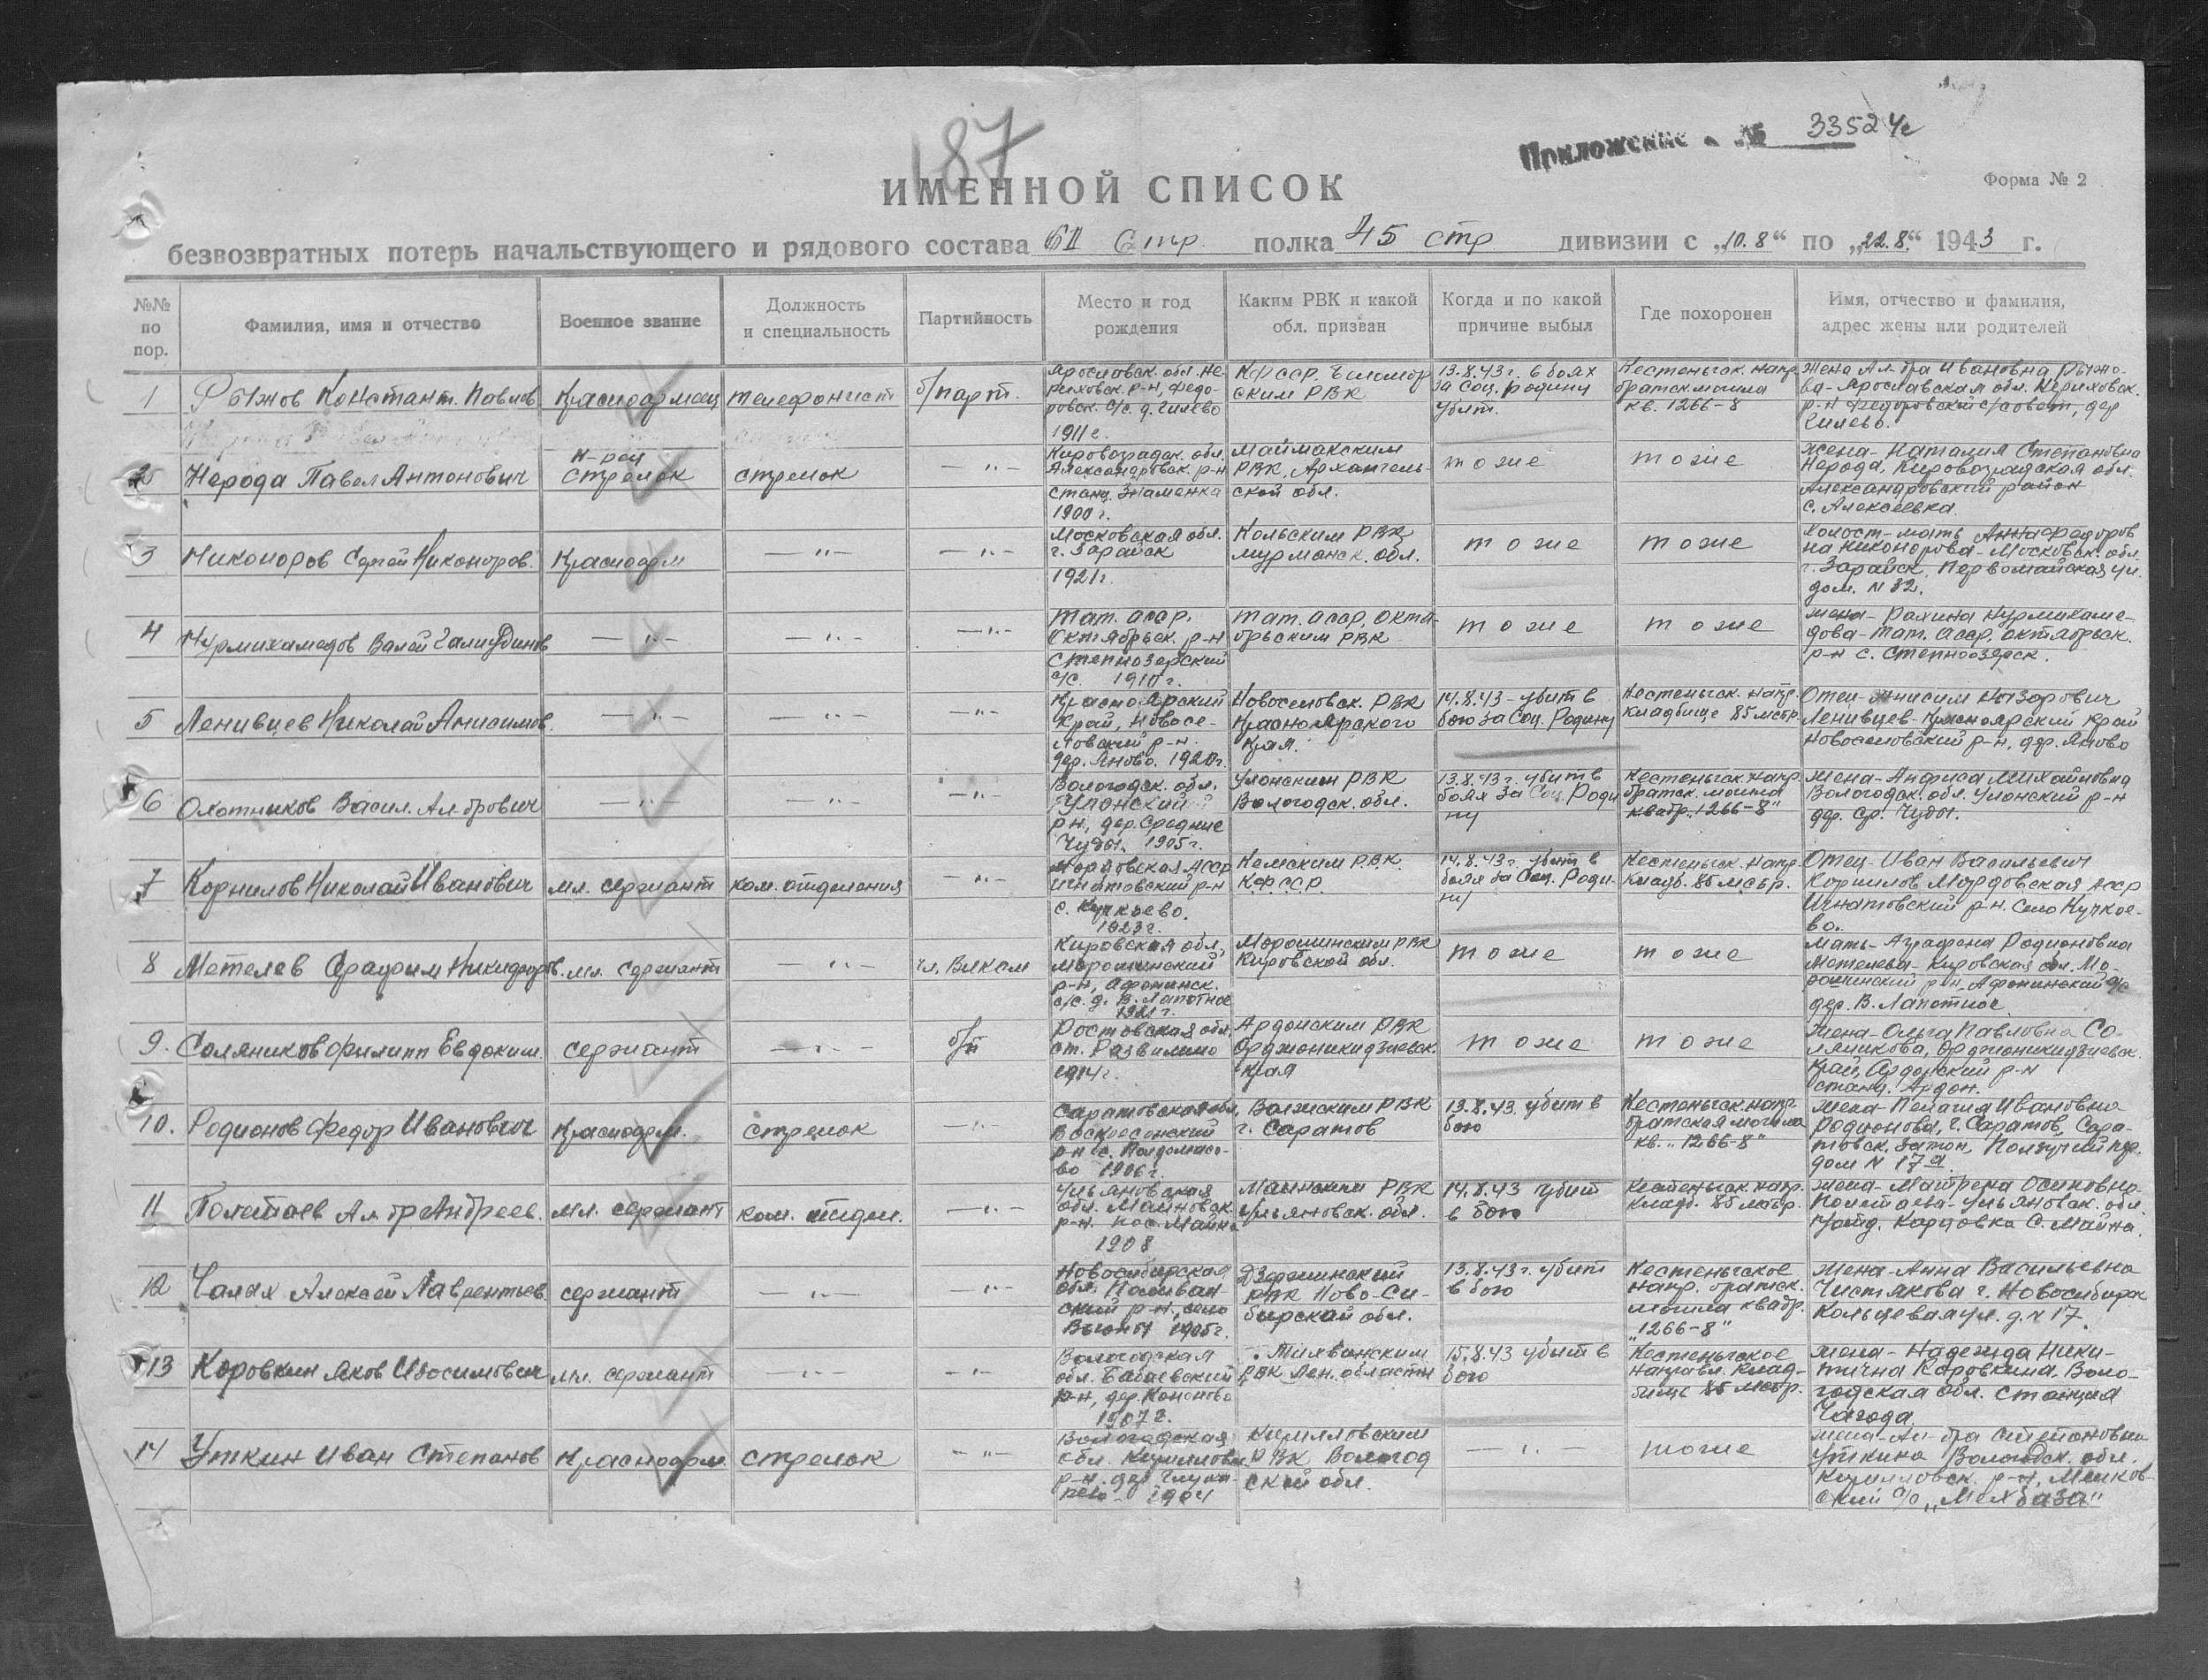 187
Приложение к № 33524с
ИМЕННОЙ СПИСОК
Форма № 2
безвозвратных потерь начальствующего и рядового состава 61 Стр. полка 45 стр дивизии с „10.8“ по „22.8.“ 1943 г.
№№ по пор.
Фамилия, имя и отчество
Военное звание
Должность и специальность
Партийность
Место и год рождения
Каким РВК и какой обл. призван
Когда и по какой причине выбыл
Где похоронен
Имя, отчество и фамилия, адрес жены или родителей
1 Рыжов Констант. Павлов Красноармеец телефонист б/парт.
Ярославск. обл. Не-
реховск. р-н, Федо-
ровск. с/с. д. Гилево
1911 г.
КФССР. Беломор
ским РВК
13.8.43 г. в боях
за Соц. родину
убит.
Кестеньгск. напр.
братск. могила
кв. 1266-8
Жена Ал-дра Ивановна Рыжо-
ва - Ярославская обл. Нереховск.
р-н Федоровский с/совет, дер
Гилево.
2 Нерода Павел Антонович
К-рец
Стрелок
стрелок
— " —
Кировоградск. обл.
Александровск. р-н
станц. Знаменка
1900 г.
Маймакским
РВК, Архангель-
ской обл.
то же
то же
Жена - Наталия Степановна
Нерода, Кировоградская обл.
Александровский район
с. Алексеевка.
3 Никоноров Сергей Никоноров. Красноарм — " — — " —
Московская обл.
г. Зарайск
1921 г.
Кольским РВК
Мурманск. обл.
то же
то же
Холост - мать Анна Федоров
на Никонорова - Московск. обл.
г. Зарайск, Первомайская ул.
дом. N 32.
4 Нурмихамедов Валей Галиудинов — " — — " — — " —
Тат. АССР.
Октябрьск. р-н
Степноозерский
с/с. 1910 г.
Тат. АССР, Октя-
брьским РВК
то же
то же
Жена - Рахина Нурмихаме-
дова - Тат. АССР, Октябрьск.
р-н с. Степноозерск.
5 Ленивцев Николай Анисимов. — " — — " — — " —
Красноярский
Край, Новосе-
ловский р-н.
дер. Яново. 1920 г.
Новоселовск. РВК
Красноярского
Края.
14.8.43 - убит в
бою за Соц. Родину
Кестеньгск. напр.
кладбище 85 мсбр.
Отец - Анисим Назарович
Ленивцев - Красноярский край
Новоселовский р-н, дер. Яново
6 Охотников Васил. Ал-дрович — " — — " — — " —
Вологодск. обл.
Улонский
р-н, дер. Средние
Чуды. 1905 г.
Улонским РВК
Вологодск. обл.
13.8.43 г. убит в
боях за Соц. Роди
ну
Кестеньгск. напр.
братск. могила
квадр. „1266-8"
Жена - Анфиса Михайловна
Вологодск. обл. Улонский р-н
дер. Ср. Чуды.
7 Корнилов Николай Иванович мл. сержант ком. отделения — " —
Мордовская АССР
Игнатовский р-н
с. Кучкаево.
1923 г.
Кемским РВК
КФССР
14.8.43 г. убит в
боях за Соц. Роди-
ну
Кестеньгск. напр.
кладб. 85 мсбр.
Отец - Иван Васильевич
Корнилов Мордовская АССР
Игнатовский р-н. Село Кучкае-
во.
8 Метелев Серафим Никифоров. мл. сержант — " — чл. Влксм
Кировская обл,
Морошинский
р-н, Афонинск.
с/с. д. В. Лапотное
1921 г.
Морошинским РВК
Кировской обл.
то же
то же
Мать - Аграфена Родионовна
Метелева - Кировская обл. Мо-
рошинский р-н, Афонинский с/с
дер. В. Лапотное.
9. Соляников Филипп Евдоким. сержант — " — б/п
Ростовская обл.
ст. Развильно
1914 г.
Ардонским РВК
Орджоникидзевск.
края
то же
то же
Жена - Ольга Павловна Со-
ляникова, Орджоникидзевск.
край, Ардонский р-н
станц. Ардон.
10. Родионов Федор Иванович Красноарм. стрелок — " —
Саратовская обл,
Воскресенский
р-н с. Полдомасо-
во 1906 г.
Волжским РВК
г. Саратов
13.8.43 убит в
бою
Кестеньгск. напр.
братская могила
кв. „1266-8"
Жена - Пелагия Ивановна
Родионова, г. Саратов, Сара-
товск. затон, Ползучий пер.
дом N 17 а.
11 Полетаев Ал-др Андреев. мл. сержант ком. отдел. — " —
Ульяновская
обл. Маиновск.
р-н. пос. Майна
1908
Маинским РВК
Ульяновск. обл.
14.8.43 убит
в бою
Кестеньгск. напр.
кладб. 85 мсбр.
Жена - Матрена Осиповна
Полетаева - Ульяновск. обл.
Карловка С. Майна.
12 Чалых Алексей Лаврентьев сержант — " — — " —
Новосибирская
обл. Пашиван
ский р-н, село
Вьюны 1905 г.
Дзержинский
РВК Ново-Си-
бирской обл.
13.8.43 г. убит
в бою
Кестеньгское
напр. братск.
могила квадр.
„1266-8"
Жена - Анна Васильевна
Чистякова г. Новосибирск
Кольцевая ул. д. N 17.
13 Коровкин Яков Изосимович мл. сержант — " — — " —
Вологодская
обл. Бабаевский
р-н, дер. Кононово
1907 г.
РВК Лен. области
15.8.43 убит в
бою
Кестеньгское
направл. клад-
бище 85 мсбр.
Жена - Надежда Ники-
тична Коровкина. Воло-
годская обл. станция
Чагода.
14 Уткин Иван Степанов Красноарм. стрелок — " —
Вологодская
обл. Кирилловск.
р-н. дер.
1904
Кирилловским
РВК Вологод
ской обл.
— " —
то же
Жена - Ал-дра Степановна
Уткина Вологодск. обл.
Кирилловск. р-н,
с/с „Мехбаза"